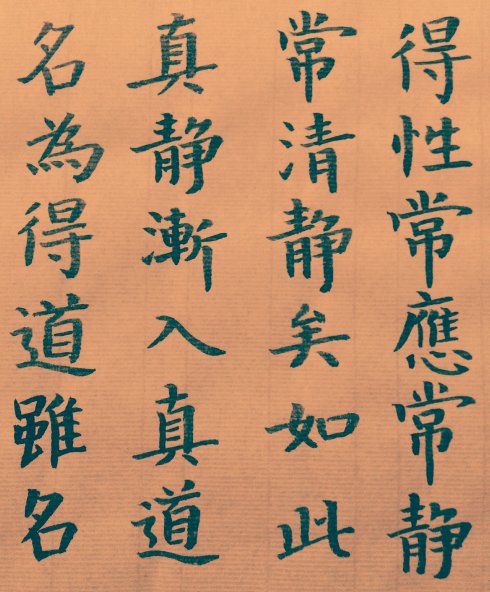 得性常應常静
常清静矣如此
真静漸入真道
名為得道雖名